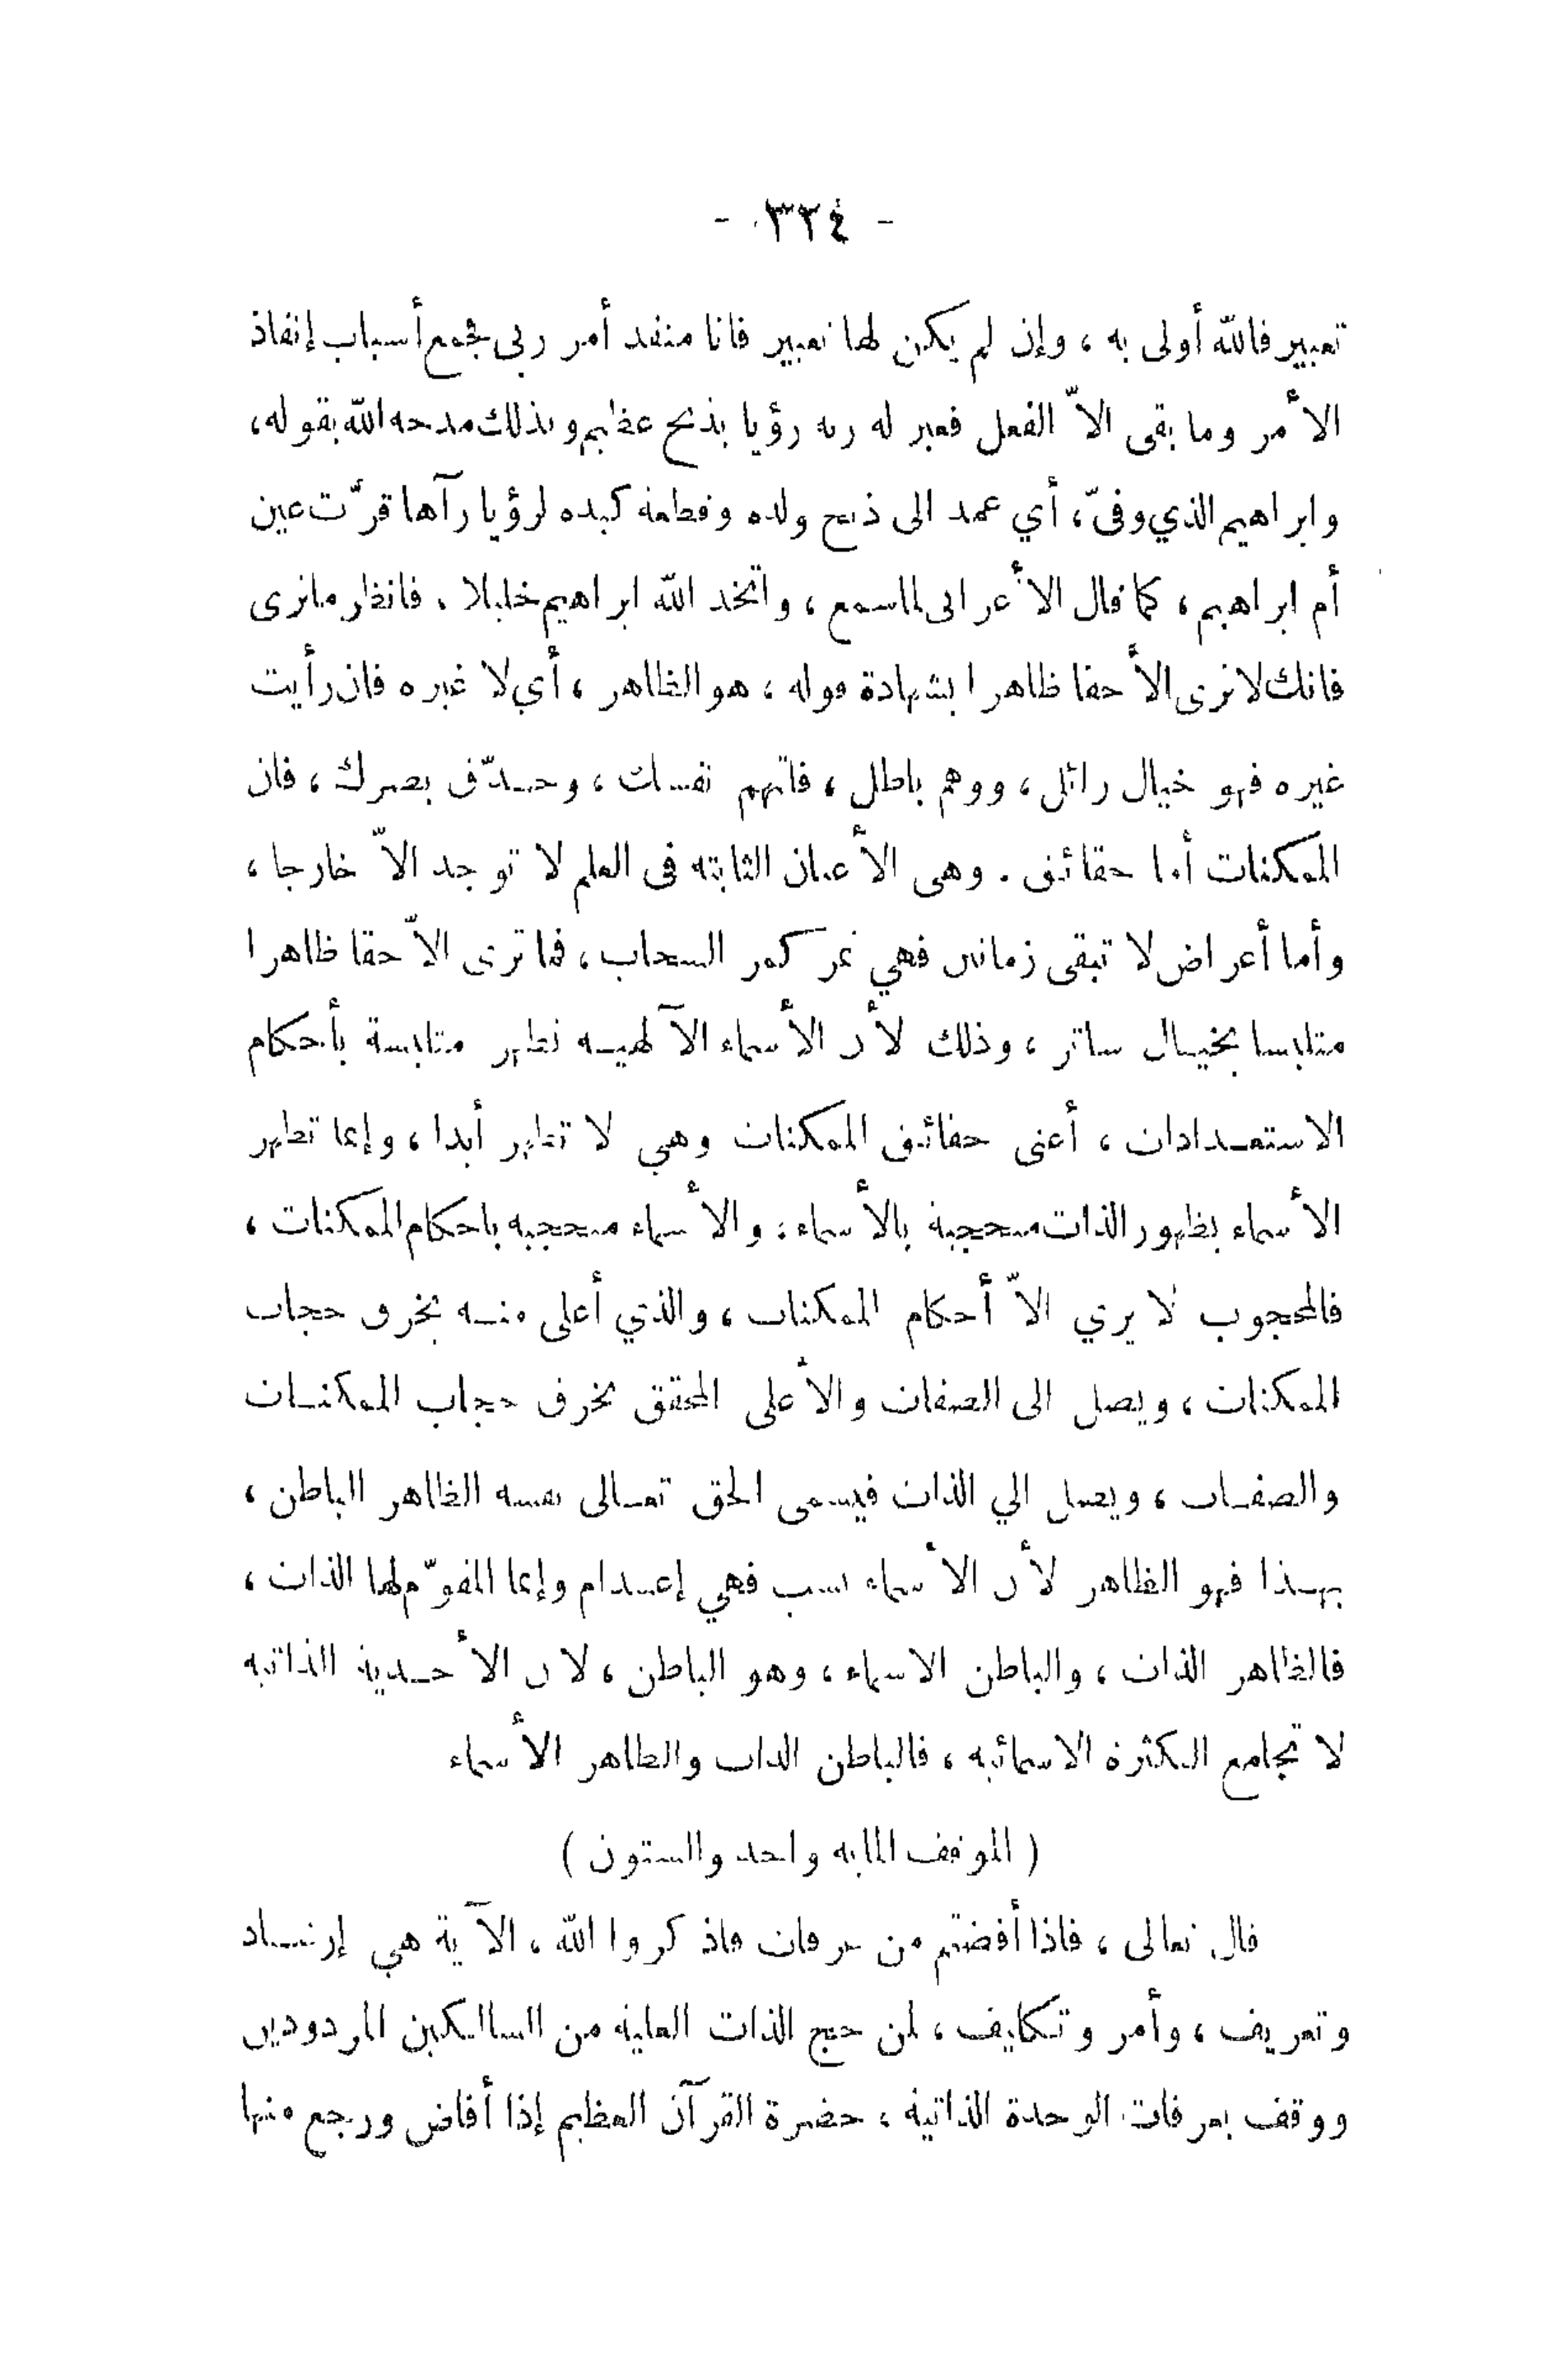 - ٣٢٤ -
تعبير فالله أولى به ، وإن لم يكن لها تعبير فانا منفذ أمر ربى فجمع أسباب إنفاذ
الأمر وما بقى الاّ الفعل فعبر له ربه رؤيا بذبح عظيم وبذلك مدحه الله بقوله،
وابراهيم الذي وفىّ، أي عمد الى ذبح ولده وقطعة كبده لرؤيا رآها قرّت عين
أم ابراهيم ، كما قال الأعرابى لما سمع ، واتخذ الله ابراهيم خليلا ، فانظر ما ترى
فانك لا ترى الأ حقا ظاهرا بشهادة قوله ، هو الظاهر ، أي لا غيره فان رأيت
غيره فهو خيال زائل ، ووهم باطل ، فاتهم نفسك ، وحدّق بصرك ، فان
الممكنات أما حقائق . وهى الأعيان الثابتة فى العلم لا توجد الاّ خارجا ،
وأما أعراض لا تبقى زمانين فهي تمرّ كمر السحاب ، فما ترى الاّ حقا ظاهرا
متلبسا بخيال ساتر ، وذلك لأن الأسماء الآلهية تظهر متلبسة بأحكام
الاستعدادات ، أعنى حقائق الممكنات وهي لا تظهر أبدا ، وإنما تظهر
الأسماء بظهور الذات متحجبة بالأسماء ، والأسماء متحجبة باحكام الممكنات ،
فالمحجوب لا يري الاّ أحكام الممكنات ، والذي أعلى منه يخرق حجاب
الممكنات ، ويصل الى الصفات والأعلى المحقق يخرق حجاب الممكنات
والصفات ، ويصل الي الذات فيسمى الحق تعالى نفسه الظاهر الباطن ،
بهذا فهو الظاهر لأن الأسماء نسب فهي إعدام وإنما المقوّم لها الذات ،
فالظاهر الذات ، والباطن الاسماء ، وهو الباطن ، لان الأحدية الذاتية
لا تجامع الكثرة الاسمائية ، فالباطن الذات والظاهر الأسماء
( الموقف المايه واحد والستون )
قال تعالى ، فاذا أفضتم من عرفات فاذكروا الله ، الآية هي إرشاد
وتعريف ، وأمر وتكليف ، لمن حج الذات العلية من السالكين المردودين
ووقف بعرفات الوحدة الذاتية ، حضرة القرآن العظيم إذا أفاض ورجع منها